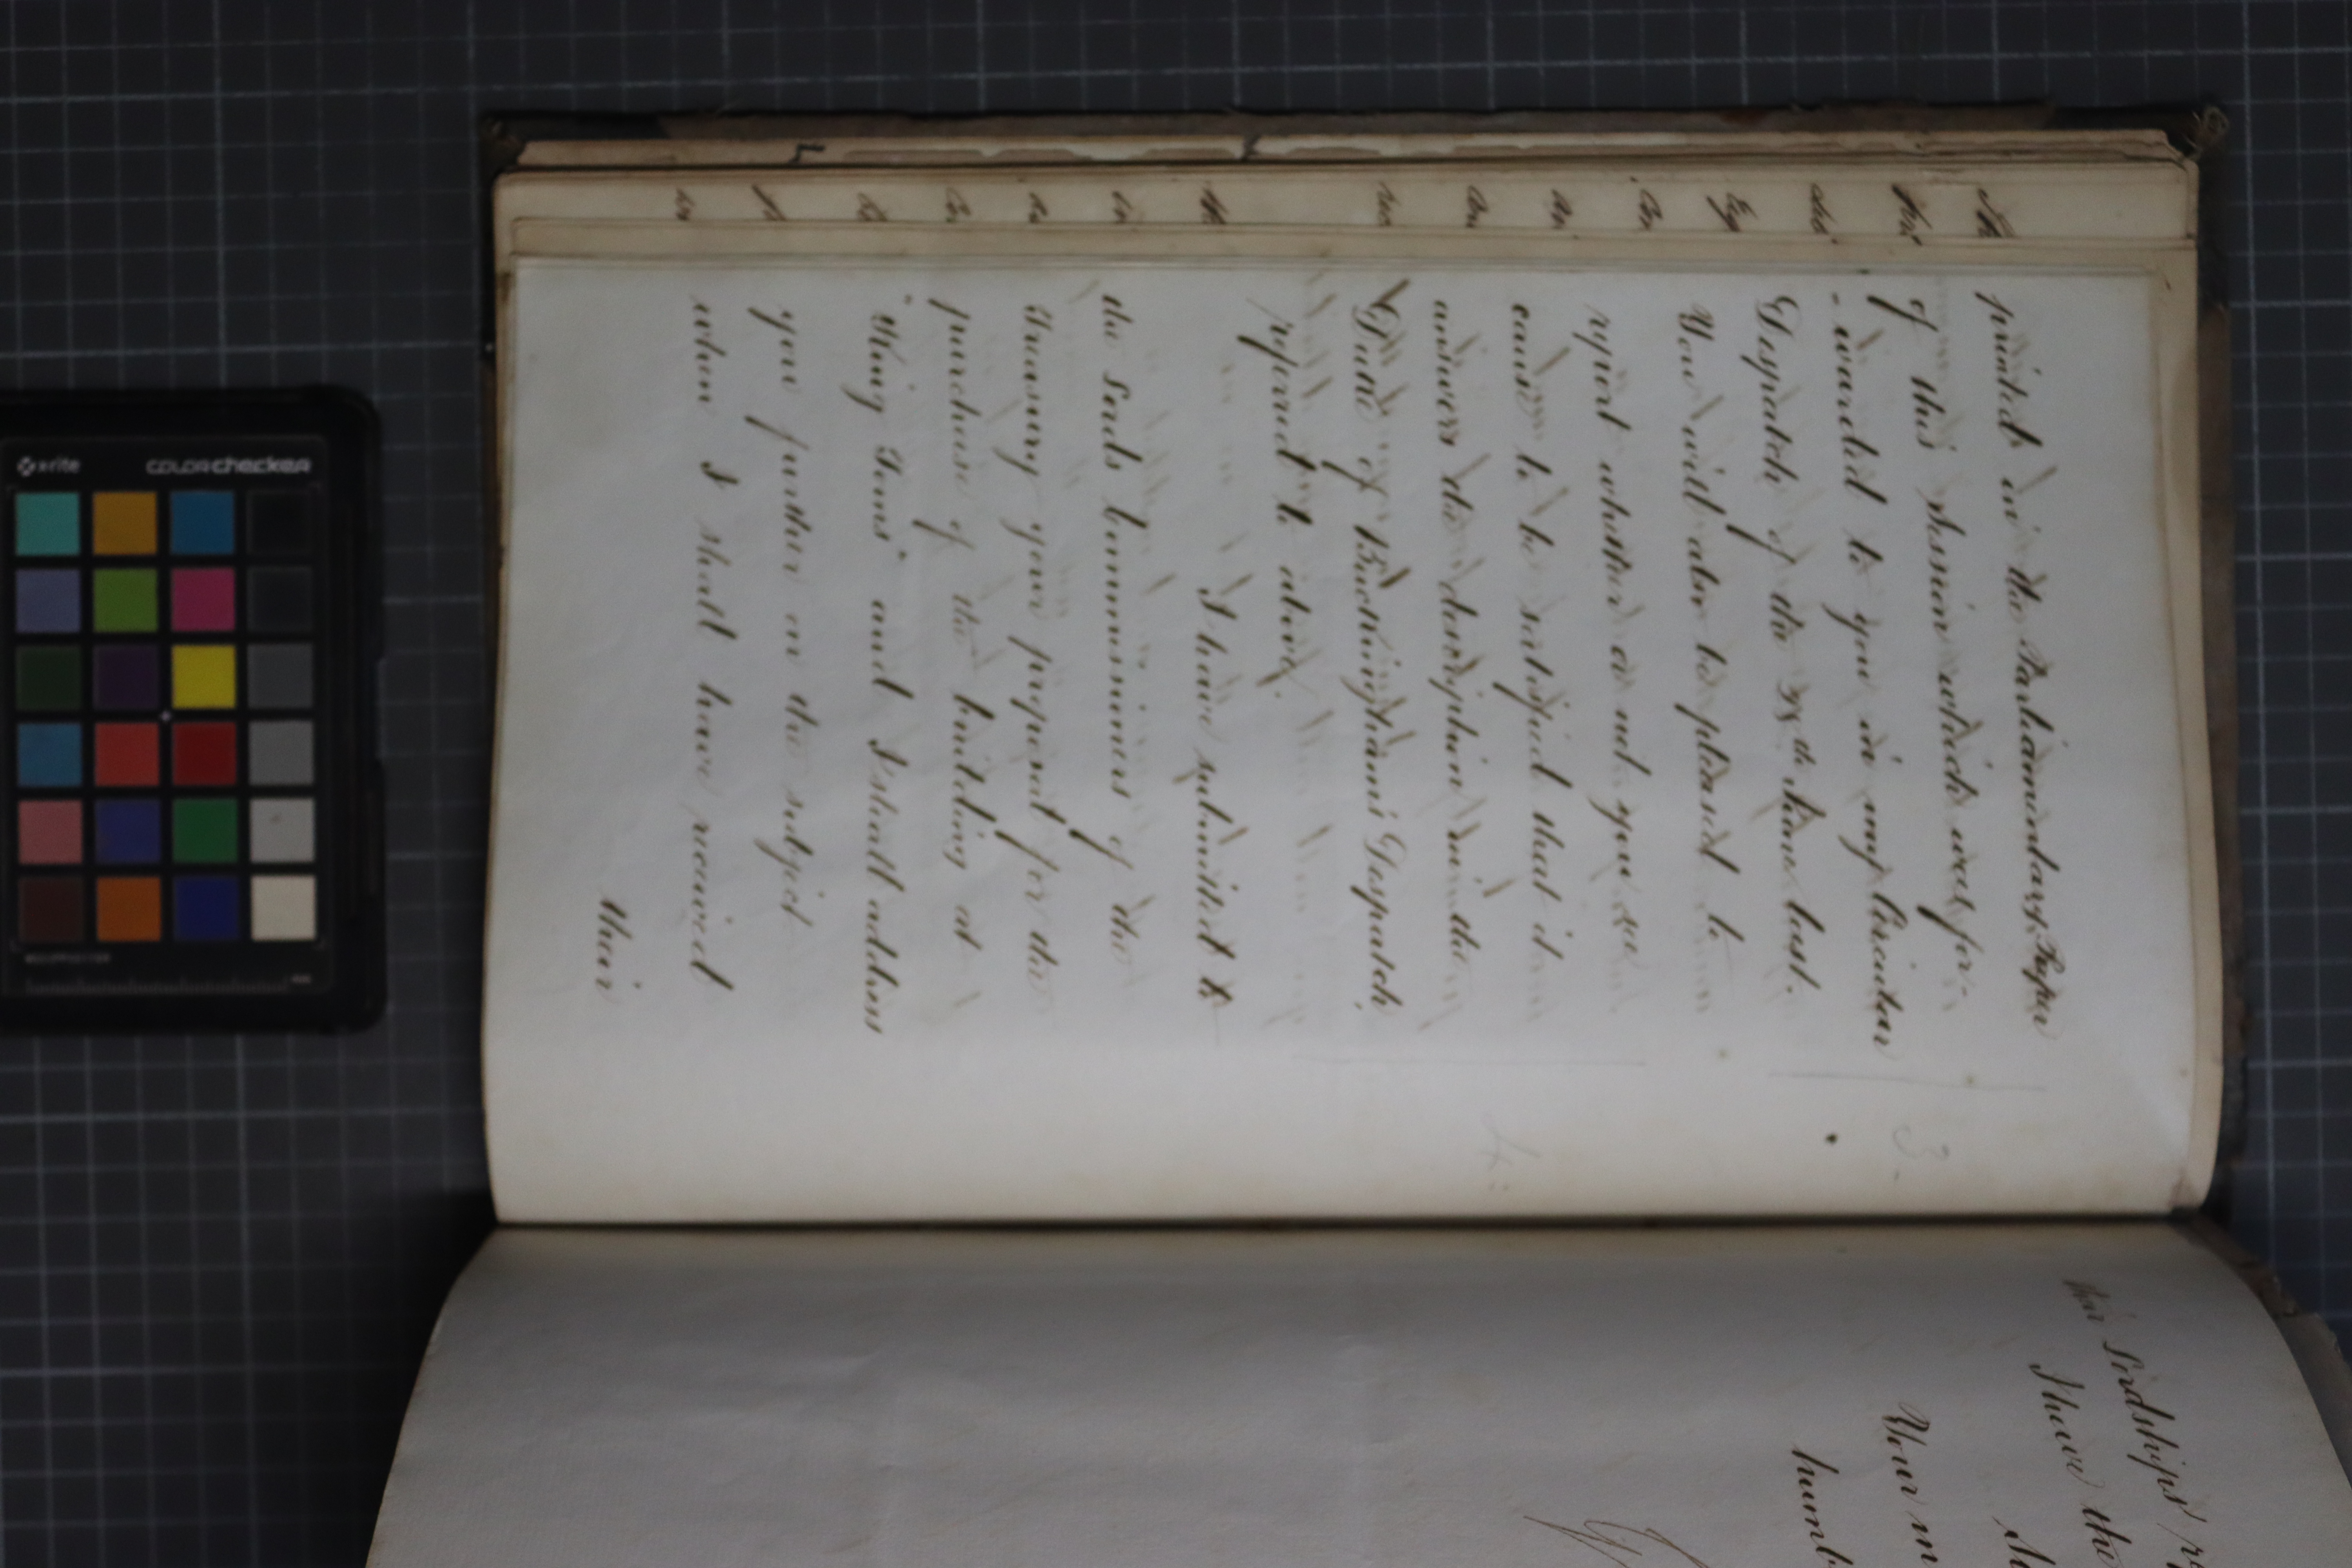 printed in the Parliamentary Paper
of this Session which was for-
-warded to you in my Circular
Despatch of the th June last.
You will also be pleased to
report whether or not you see
cause to be satisfied that it
answers the description in the
Duke of Buckingham's Despatch,
referred to above.
I have submitted to
the Lords Commissioners of the
Treasury your proposal for the
purchase of the building at
"King Toms" and I shall address
you further on the subject
when I shall have received
their
3.
4.
their Lordships' r
I have the
Your m
humb
x-rite
colorchecker